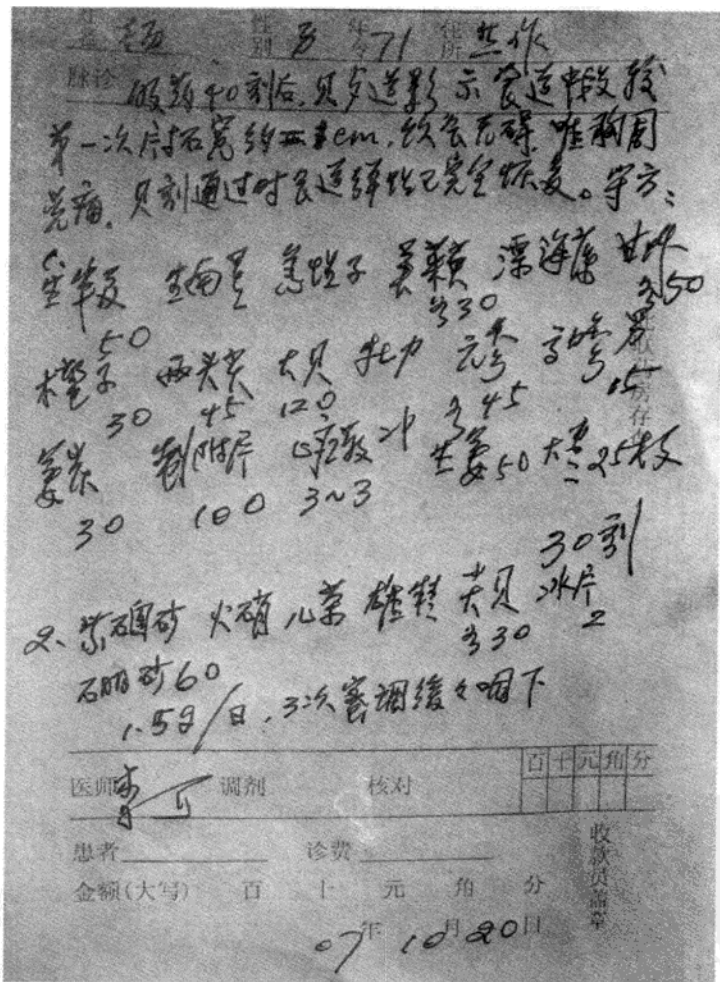 姓名 性别 男 年令 71 住所 焦作
脉诊 服药40剂后,贝歺造影示食道中段较
第一次片子宽约 1cm,饮食无碍,唯胸
闷痛,贝剂通过时食道弹性已完全恢复。守方:
1、生半夏 生南星 急性子 莨菪 漂海藻 甘草
50 各30 各50
木鳖子 两头尖 大贝 牡力 元参 高丽参
30 45 120 各45 15
姜炭 制附片 止痉散冲 生姜50 大枣25枚
30 100 3~3
30剂
2、紫硇砂 火硝 儿茶 雄精 大贝 冰片
各30 2
硼砂60
1.5g/日,3次蜜调缓々咽下
医师 李可 调剂 核对 百十元角分
患者 诊费
金额(大写) 百 十 元 角 分
收款员盖章
07年10月20日